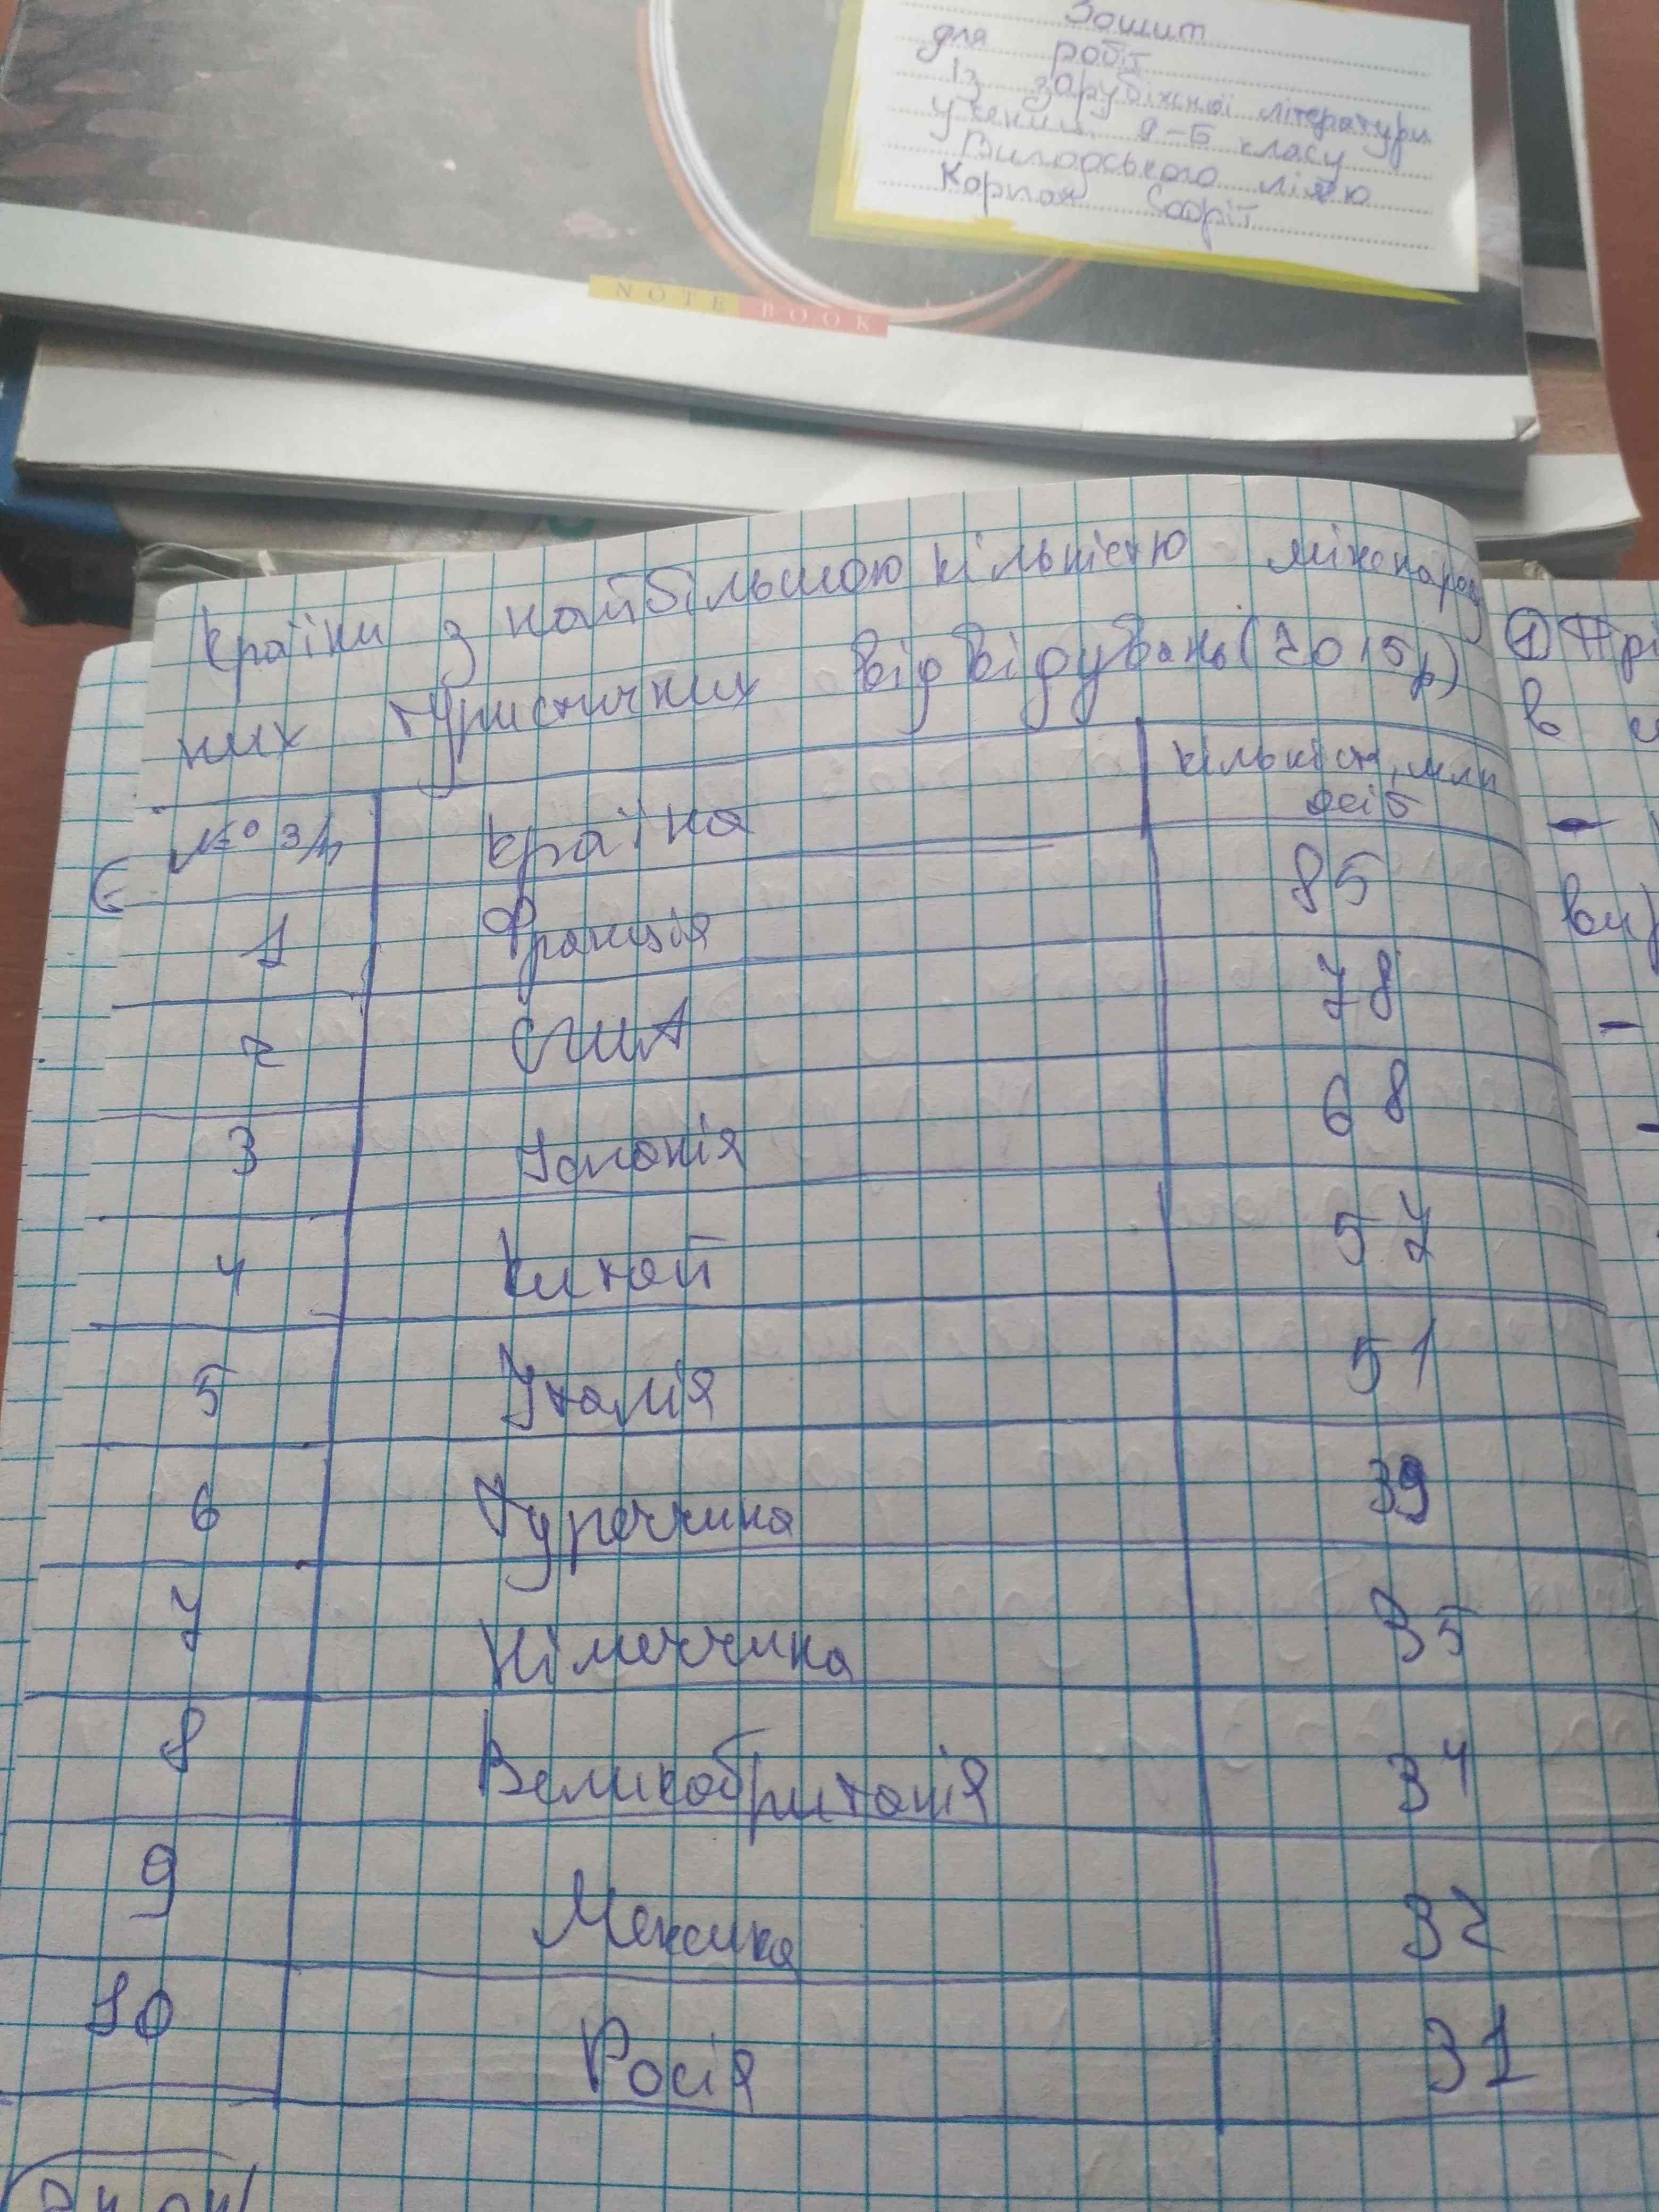 Зошит
для робіт
із зарубіжної літератури
учениці 9-Б класу
ліцею
Корпан Софії
NOTE BOOK
країни з найбільшою кількістю міжнарод
них туристичних відвідувань (2015р)
№ з/п країна кількість, млн
осіб
1 Франція 85
2 США 78
3 Іспанія 68
4 Китай 57
5 Італія 51
6 Туреччина 39
7 Німеччина 35
8 Великобританія 34
9 Мексика 32
10 Росія 31
① Прі
в